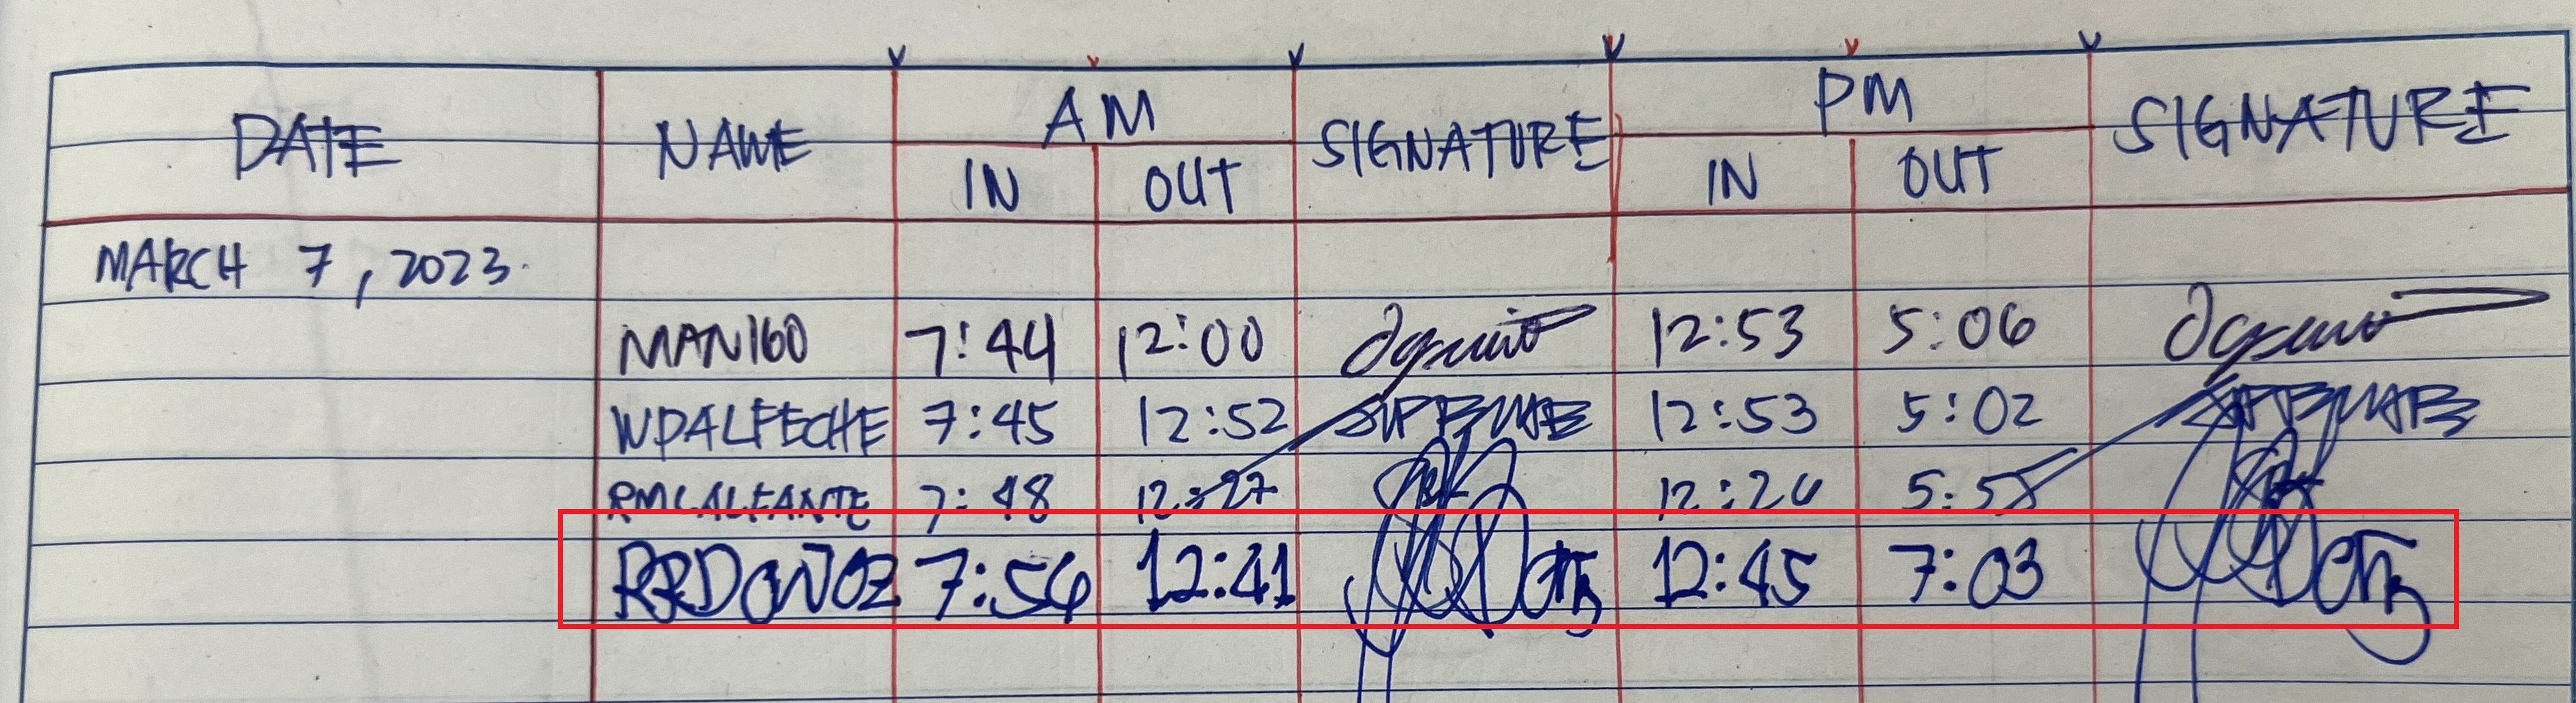 DATE NAME AM SIGNATURE PM SIGNATURE
IN OUT IN OUT
MARCH 7, 2023.
MANIGO 7:44 12:00 12:53 5:06
WPALFECHE 7:45 12:52 12:53 5:02
RMCALFANTE 7:48 12:27 12:26 5:58
7:56 12:41 12:45 7:03